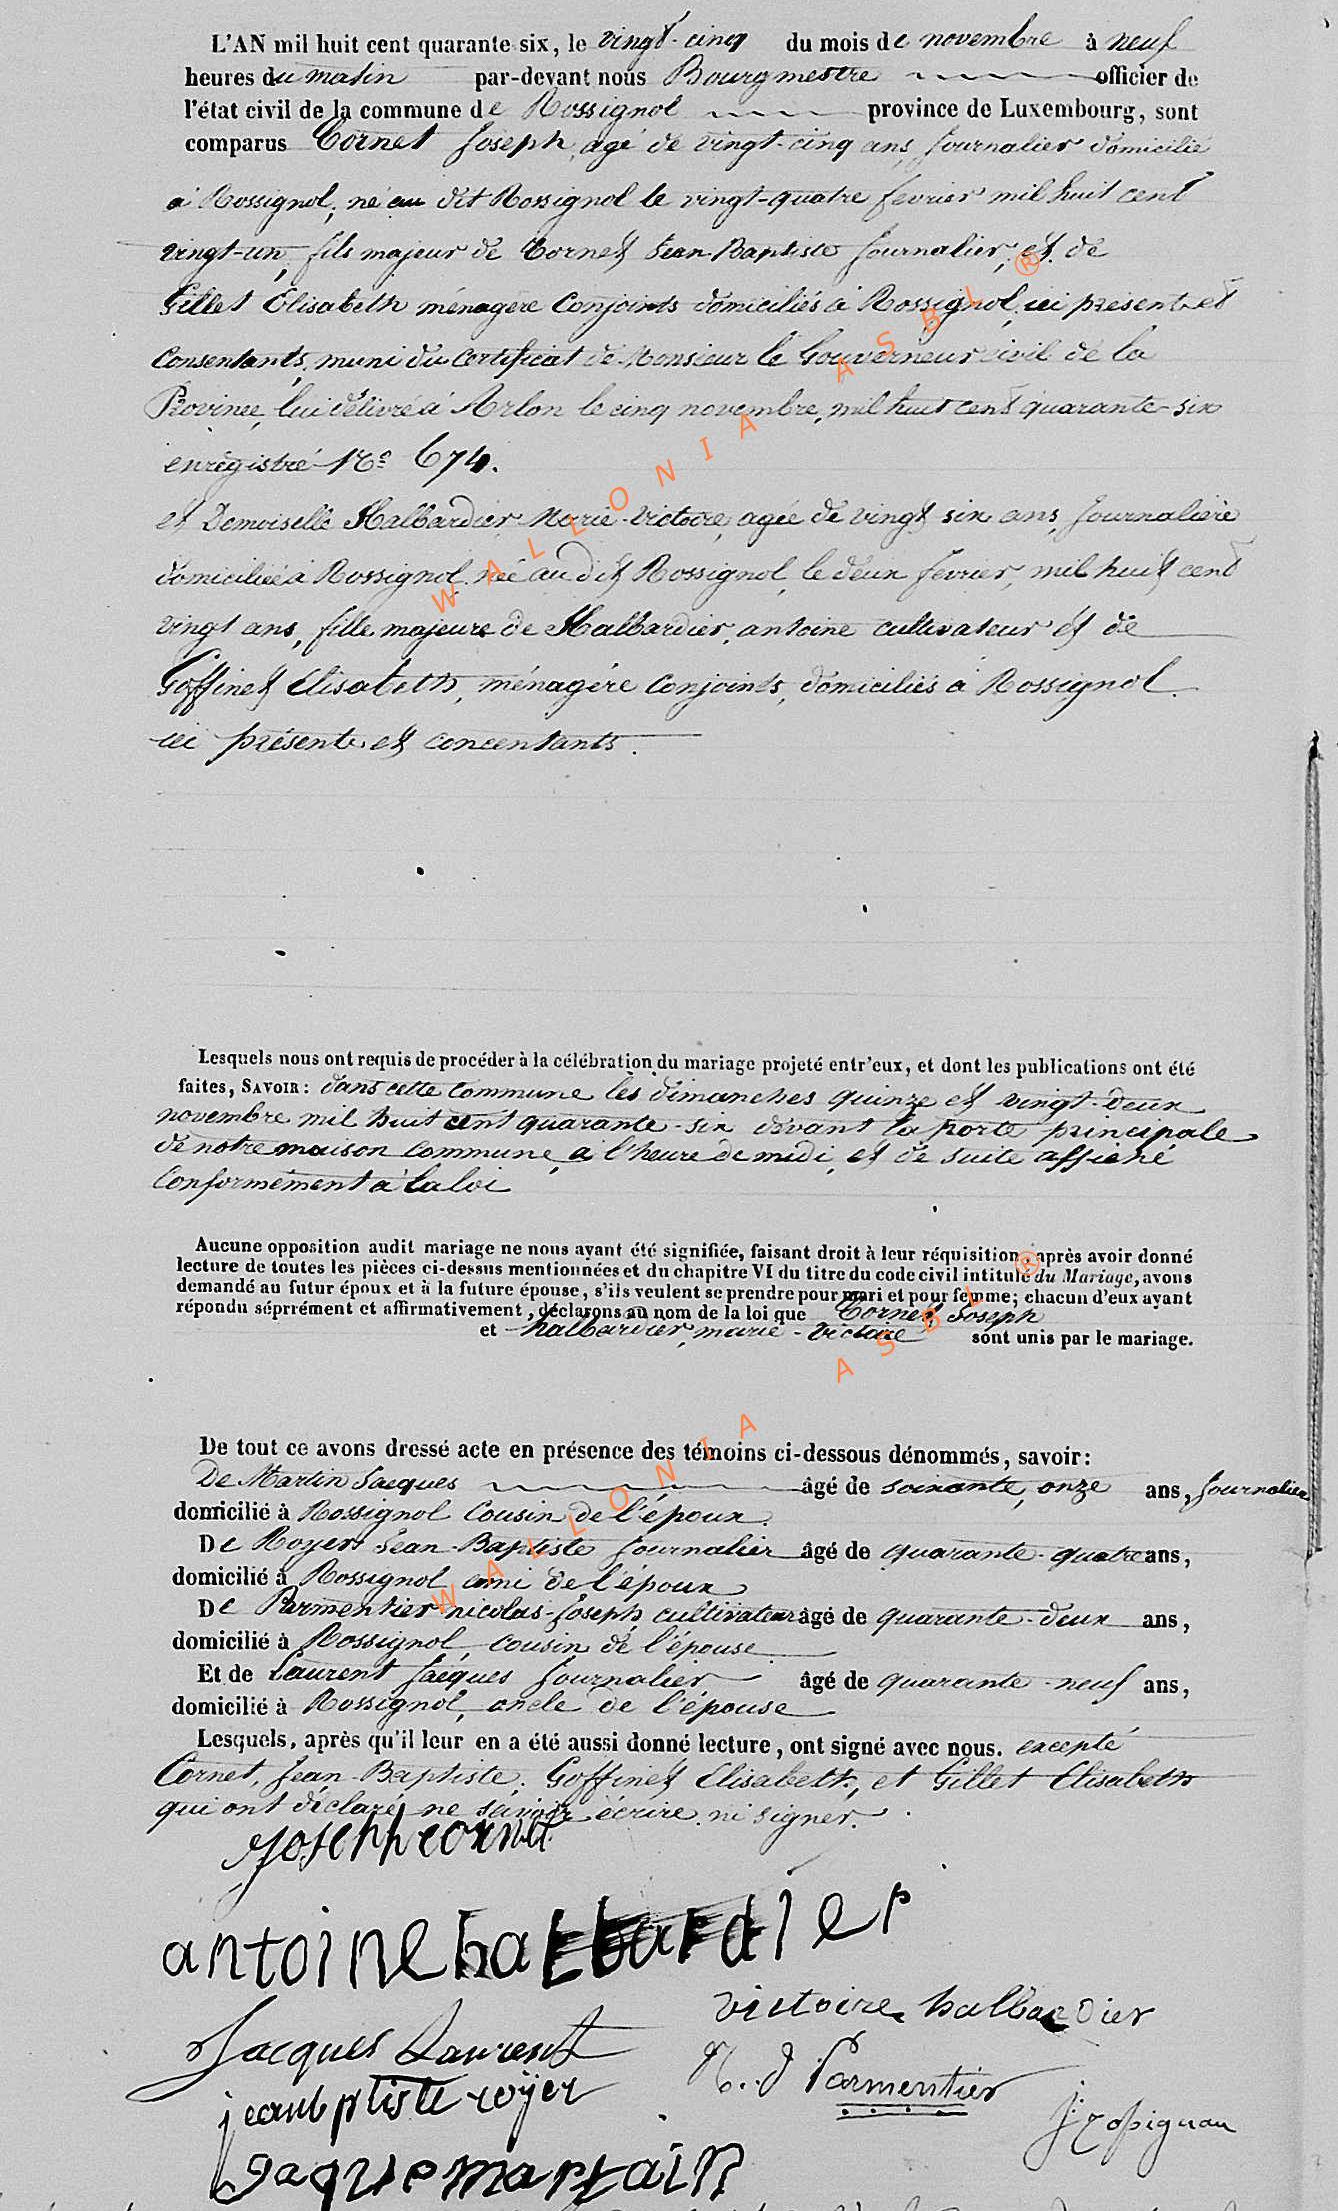 L'AN mil huit cent quarante six, le vingt-cinq du mois de novembre à neuf
heures du matin par-devant nous Bourgmestre officier de
l'état civil de la commune de Rossignol province de Luxembourg, sont
comparus Cornet Joseph, agé de vingt-cinq ans, Journalier domicilié
à Rossignol, né au dit Rossignol le vingt-quatre fevrier mil huit cent
vingt-un, fils majeur de Cornet Jean-Baptiste Journalier, et de
Gillet Elisabeth ménagère Conjoints domiciliés à Rossignol, ici présent et
Consentants, muni du certificat de Monsieur le Gouverneur civil de la
Province, lui délivré à Arlon le cinq novembre, mil huit cent quarante-six
enrégistré No 674.
et Demoiselle Halbardier Marie-Victoire, agée de vingt six ans, Journalière
domiciliée à Rossignol, née au dit Rossignol, le deux fevrier, mil huit cent
vingt ans, fille majeure de Halbardier, antoine cultivateur et de
Goffinet Elisabeth, ménagère Conjoints, domiciliés à Rossignol
ici présents et concentants.
Lesquels nous ont requis de procéder à la célébration du mariage projeté entr'eux, et dont les publications ont été
faites, SAVOIR: dans cette commune les dimanches quinze et vingt-deux
novembre mil huit cent quarante-six devant la porte principale
de notre maison commune, à l'heure de midi, et de suite affiché
Conformément à la loi
Aucune opposition audit mariage ne nous ayant été signifiée, faisant droit à leur réquisition, après avoir donné
lecture de toutes les pièces ci-dessus mentionnées et du chapitre VI du titre du code civil intitulé du Mariage, avons
demandé au futur époux et à la future épouse, s'ils veulent se prendre pour mari et pour femme; chacun d'eux ayant
répondu séprrément et affirmativement, déclarons au nom de la loi que Cornet Joseph
et halbardier, marie-Victoire sont unis par le mariage.
De tout ce avons dressé acte en présence des témoins ci-dessous dénommés, savoir:
De Martin Jacques âgé de soixante, onze ans, Journalier
domicilié à Rossignol Cousin de l'époux.
De Royer Jean-Baptiste Journalier âgé de quarante-quatre ans,
domicilié à Rossignol ami de l'époux
De Parmentier nicolas-Joseph cultivateur âgé de quarante-deux ans,
domicilié à Rossignol, cousin de l'épouse
Et de Laurent Jacques Journalier âgé de quarante-neuf ans,
domicilié à Rossignol, oncle de l'épouse
Lesquels, après qu'il leur en a été aussi donné lecture, ont signé avec nous. excepté
Cornet, Jean-Baptiste. Goffinet Elisabeth, et Gillet Elisabeth
qui ont déclaré ne savoir écrire ni signer.
Joseph cornet
antoine halbardier
victoire halbardier
Jacques Laurent
N..J Parmentier
jeanbptiste royer
jaque martain
WALLONIA ASBL ®
WALLONIA ASBL ®